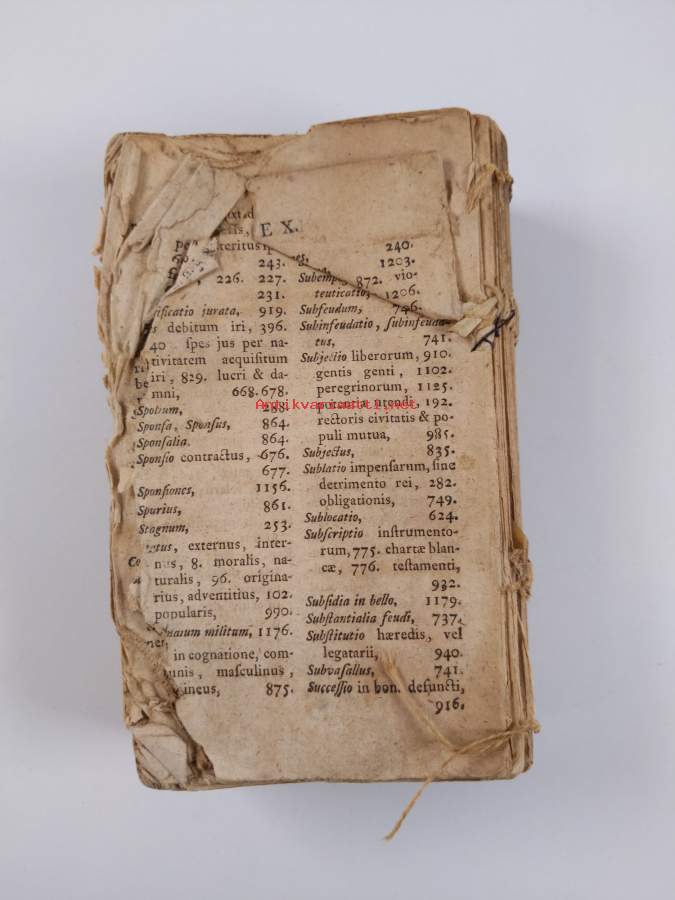 EX.
243.
226. 227.
231.
ificatio jurata, 919.
debitum iri, 396.
40 ſpes jus per na-
tivitatem aequiſitum
iri, 829. lucri & da-
mni, 668.678.
Spolium, 288.
Sponſa, Sponſus, 864.
Sponſalia. 864.
Sponſio contractus, 676.
677.
Sponſiones, 1156.
Spurius, 861.
Stagnum, 253.
externus, inter-
nus, 8. moralis, na-
turalis, 96. origina-
rius, adventitius, 102.
popularis, 990.
militum, 1176.
in cognatione, com-
unis, maſculinus,
ineus, 875.
240.
1203.
872. vio-
teuticatio, 1206.
Subfeudum, 746.
Subinfeudatio, ſubinfeuda-
tus, 741.
Subjectio liberorum, 910.
gentis genti, 1102.
peregrinorum, 1125.
utendi, 192.
Antikvariaatti.net
rectoris civitatis & po-
puli mutua, 985.
Subjectus, 835.
Sublatio impenſarum, ſine
detrimento rei, 282.
obligationis, 749.
Sublocatio, 624.
Subſcriptio inſtrumento-
rum, 775. chartæ blan-
cæ, 776. teſtamenti,
932.
Subſidia in bello, 1179.
Subſtantialia feudi, 737.
Subſtitutio hæredis, vel
legatarii, 940.
Subvaſallus, 741.
Succeſſio in bon. defuncti,
916.